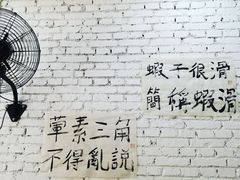 蝦子很滑
簡稱蝦滑
葷素三角
不得亂說